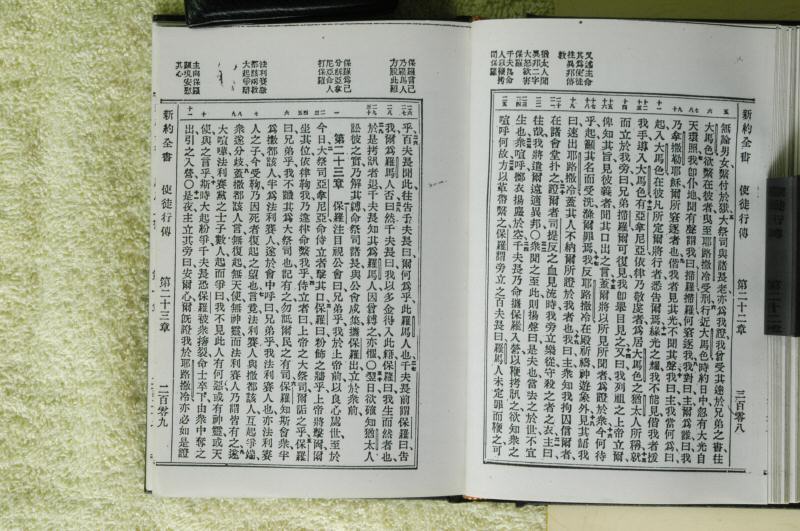 新約全書 使徒行傳 第二十二章 二百零八
又述主命
其爲使徒
往異邦傳
教
猶太人聞
異邦二字
大怒欲害
千夫長命
人以鞭拷
問保羅
無論男女繫付於獄、大祭司與諸長老、亦爲我證、我曾受其達於兄弟之書、往
大馬色、欲繫在彼者、曳至耶路撒冷受刑、行近大馬色、時約日中、忽有大光自
天環照我、我卽仆地、聞有聲謂我曰、掃羅掃羅、何窘逐我、我對曰、主爾爲誰、曰、我
乃拿撒勒耶穌、爾所窘逐者也、偕我者見其光、不聞其聲、我曰、主、我當何爲、曰
起、入大馬色、在彼凡所定爾將行者、悉告爾焉、緣光之耀、我不能見、偕我者援
我手、導入大馬色、有亞拿尼亞、依律乃敬虔者、爲居大馬色之猶太人所稱、就
而立於我旁曰、兄弟掃羅、爾可復見、我卽舉目見之、又曰、我列祖之上帝立爾
俾知其旨、見彼義者、聞其口出之言、蓋爾將以所見所聞者、爲證於衆、今何待
乎、起、籲其名而受洗、滌爾罪焉、我反耶路撒冷、在殿祈禱、神遊象外、見其語我
曰、速出耶路撒冷、蓋其人不納爾所證於我者也、我曰、主、衆知我拘囚信爾者
在諸會堂扑之、證爾者司提反之血見流時、我旁立樂從、守殺之者之衣、主曰
往哉、我將遣爾遠適異邦〇衆聞之至此、則揚聲曰、是夫也、當去之於世、不宜
生也、衆喧呼、擲衣揚塵於空、千夫長乃命攜保羅入營、以鞭拷訊之、欲知衆之
喧呼何故、方以革帶繫之、保羅謂旁立之百夫長曰、羅馬人未定罪而鞭之、可
保羅言己
乃羅馬人
方脫此難
保羅爲己
分訴亞拿
尼亞命人
打保羅
法利賽撒
都該兩教
大起爭端
主向保羅
顯現安慰
其心
乎、百夫長聞此、往告千夫長曰、爾何爲乎、此羅馬人也、千夫長前謂保羅曰、告
我、爾爲羅馬人否、曰然、千夫長曰、我以多金得入此籍、保羅曰、我生而然者也
於是拷訊者退、千夫長知其爲羅馬人、因曾縛之亦懼〇翌日、欲確知猶太人
訟彼之實、乃解其縛、命祭司諸長與公會咸集、攜保羅出立於衆前
第二十三章 保羅注目視公會曰、兄弟乎、我於上帝前、以良心處世、至於
今日、大祭司亞拿尼亞命侍立者擊其口、保羅曰、粉飾之牆乎、上帝將擊爾、爾
坐其位、依律鞫我、乃違律命擊我乎、侍立者曰、上帝之大祭司、爾詬之乎、保羅
曰、兄弟乎、我不識其爲大祭司也、記有之、勿詆爾民之有司、保羅知斯會衆、半
爲撒都該人、半爲法利賽人、遂於會中呼曰、兄弟乎、我法利賽人也、亦法利賽
人之子、今受鞫、乃因死者復起之望也、言竟、法利賽人與撒都該人互起爭端
衆遂分歧、蓋撒都該人言無復起、無天使、無神靈、而法利賽人乃謂皆有之、遂
大喧嚷、法利賽黨之士子數人起而爭曰、我不見此人有何惡、或有神靈、或天
使與之言乎、斯時大起紛爭、千夫長恐保羅被衆搚裂、命士卒下、由衆中奪之
出、引之入營〇是夜主立其旁曰、安爾心、爾旣證我於耶路撒冷、亦必如是證
新約全書 使徒行傳 第二十三章 二百零九